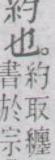 約
也。約取纏
書於宗